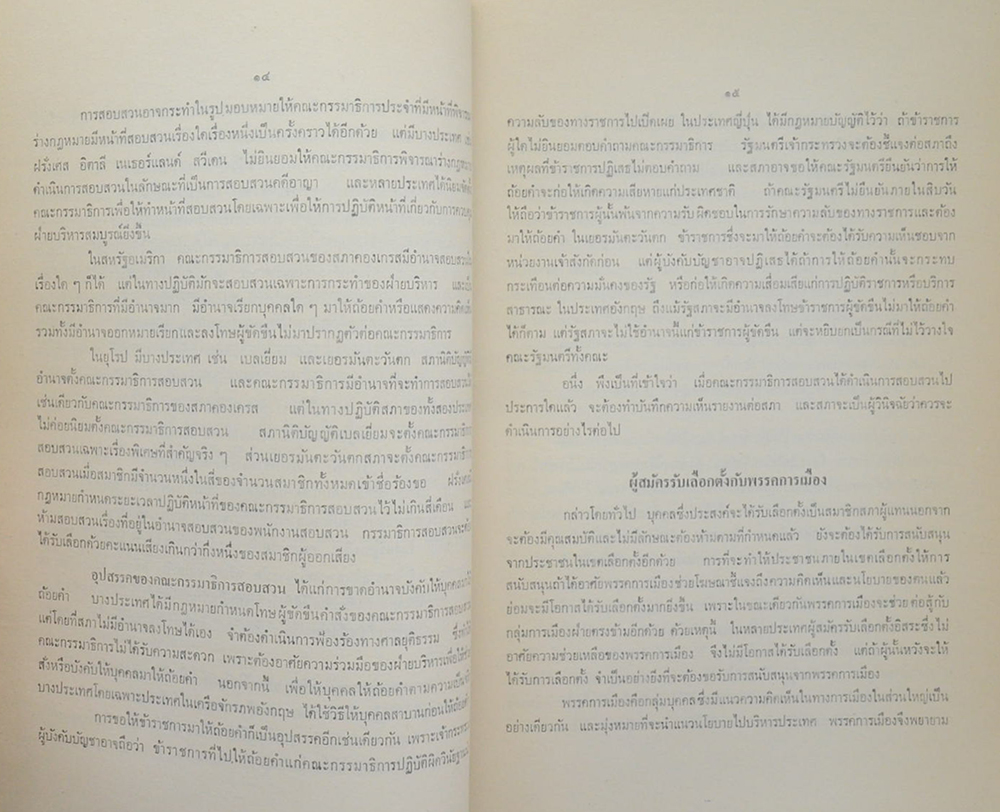 ๑๔
การสอบสวนอาจกระทำในรูปมอบหมายให้คณะกรรมาธิการประจำที่มีหน้าที่พิจารณา
ร่างกฎหมายมีหน้าที่สอบสวนเรื่องใดเรื่องหนึ่งเป็นครั้งคราวได้อีกด้วย แต่มีบางประเทศ เช่น
ฝรั่งเศส อิตาลี เนเธอร์แลนด์ สวีเดน ไม่ยินยอมให้คณะกรรมาธิการพิจารณาร่างกฎหมาย
ดำเนินการสอบสวนในลักษณะที่เป็นการสอบสวนคดีอาญา และหลายประเทศได้นิยมจัดตั้ง
คณะกรรมาธิการเพื่อให้ทำหน้าที่สอบสวนโดยเฉพาะเพื่อให้การปฏิบัติหน้าที่เกี่ยวกับการควบคุม
ฝ่ายบริหารสมบูรณ์ยิ่งขึ้น
ในสหรัฐอเมริกา คณะกรรมาธิการสอบสวนของสภาคองเกรสมีอำนาจสอบสวนใน
เรื่องใด ๆ ก็ได้ แต่ในทางปฏิบัติมักจะสอบสวนเฉพาะการกระทำของฝ่ายบริหาร และเป็น
คณะกรรมาธิการที่มีอำนาจมาก มีอำนาจเรียกบุคคลใด ๆ มาให้ถ้อยคำหรือแสดงความคิดเห็น
รวมทั้งมีอำนาจออกหมายเรียกและลงโทษผู้ขัดขืนไม่มาปรากฏตัวต่อคณะกรรมาธิการ
ในยุโรป มีบางประเทศ เช่น เบลเยี่ยม และเยอรมันตะวันตก สภานิติบัญญัติมี
อำนาจตั้งคณะกรรมาธิการสอบสวน และคณะกรรมาธิการมีอำนาจที่จะทำการสอบสวนได้
เช่นเดียวกับคณะกรรมาธิการของสภาคองเครส แต่ในทางปฏิบัติสภาของทั้งสองประเทศ
ไม่ค่อยนิยมตั้งคณะกรรมาธิการสอบสวน สภานิติบัญญัติเบลเยี่ยมจะตั้งคณะกรรมาธิการ
สอบสวนเฉพาะเรื่องพิเศษที่สำคัญจริง ๆ ส่วนเยอรมันตะวันตกสภาจะตั้งคณะกรรมาธิการ
สอบสวนเมื่อสมาชิกมีจำนวนหนึ่งในสี่ของจำนวนสมาชิกทั้งหมดเข้าชื่อร้องขอ ฝรั่งเศส
กฎหมายกำหนดระยะเวลาปฏิบัติหน้าที่ของคณะกรรมาธิการสอบสวนไว้ไม่เกินสี่เดือน และ
ห้ามสอบสวนเรื่องที่อยู่ในอำนาจสอบสวนของพนักงานสอบสวน กรรมาธิการสอบสวนจะต้อง
ได้รับเลือกด้วยคะแนนเสียงเกินกว่ากึ่งหนึ่งของสมาชิกผู้ออกเสียง
อุปสรรคของคณะกรรมาธิการสอบสวน ได้แก่การขาดอำนาจบังคับให้บุคคลมาให้
ถ้อยคำ บางประเทศได้มีกฎหมายกำหนดโทษผู้ขัดขืนคำสั่งของคณะกรรมาธิการสอบสวน
แต่โดยที่สภาไม่มีอำนาจลงโทษได้เอง จำต้องดำเนินการฟ้องร้องทางศาลยุติธรรม ซึ่งทำให้
คณะกรรมาธิการไม่ได้รับความสะดวก เพราะต้องอาศัยความร่วมมือของฝ่ายบริหารเพื่อให้
สั่งหรือบังคับให้บุคคลมาให้ถ้อยคำ นอกจากนี้ เพื่อให้บุคคลให้ถ้อยคำตามความเป็นจริง
บางประเทศโดยเฉพาะประเทศในเครือจักรภพอังกฤษ ได้ใช้วิธีให้บุคคลสาบานก่อนให้ถ้อยคำ
การขอให้ข้าราชการมาให้ถ้อยคำก็เป็นอุปสรรคอีกเช่นเดียวกัน เพราะเจ้ากระทรวง
ผู้บังคับบัญชาอาจถือว่า ข้าราชการที่ไปให้ถ้อยคำแก่คณะกรรมาธิการปฏิบัติผิดวินัยฐาน
๑๕
ความลับของทางราชการไปเปิดเผย ในประเทศญี่ปุ่น ได้มีกฎหมายบัญญัติไว้ว่า ถ้าข้าราชการ
ผู้ใดไม่ยินยอมตอบคำถามคณะกรรมาธิการ รัฐมนตรีเจ้ากระทรวงจะต้องชี้แจงต่อสภาถึง
เหตุผลที่ข้าราชการปฏิเสธไม่ตอบคำถาม และสภาอาจขอให้คณะรัฐมนตรียืนยันว่าการให้
ถ้อยคำจะก่อให้เกิดความเสียหายแก่ประเทศชาติ ถ้าคณะรัฐมนตรีไม่ยืนยันภายในสิบวัน
ให้ถือว่าข้าราชการผู้นั้นพ้นจากความรับผิดชอบในการรักษาความลับของทางราชการและต้อง
มาให้ถ้อยคำ ในเยอรมันตะวันตก ข้าราชการซึ่งจะมาให้ถ้อยคำจะต้องได้รับความเห็นชอบจาก
หน่วยงานเจ้าสังกัดก่อน แต่ผู้บังคับบัญชาอาจปฏิเสธได้ถ้าการให้ถ้อยคำนั้นจะกระทบ
กระเทือนต่อความมั่นคงของรัฐ หรือก่อให้เกิดความเสื่อมเสียแก่การปฏิบัติราชการหรือบริการ
สาธารณะ ในประเทศอังกฤษ ถึงแม้รัฐสภาจะมีอำนาจลงโทษข้าราชการผู้ขัดขืนไม่มาให้ถ้อยคำ
ได้ก็ตาม แต่รัฐสภาจะไม่ใช้อำนาจนี้แก่ข้าราชการผู้ขัดขืน แต่จะหยิบยกเป็นกรณีที่ไม่ไว้วางใจ
คณะรัฐมนตรีทั้งคณะ
อนึ่ง พึงเป็นที่เข้าใจว่า เมื่อคณะกรรมาธิการสอบสวนได้ดำเนินการสอบสวนไป
ประการใดแล้ว จะต้องทำบันทึกความเห็นรายงานต่อสภา และสภาจะเป็นผู้วินิจฉัยว่าควรจะ
ดำเนินการอย่างไรต่อไป
ผู้สมัครรับเลือกตั้งกับพรรคการเมือง
กล่าวโดยทั่วไป บุคคลซึ่งประสงค์จะได้รับเลือกตั้งเป็นสมาชิกสภาผู้แทนนอกจาก
จะต้องมีคุณสมบัติและไม่มีลักษณะต้องห้ามตามที่กำหนดแล้ว ยังจะต้องได้รับการสนับสนุน
จากประชาชนในเขตเลือกตั้งอีกด้วย การที่จะทำให้ประชาชนภายในเขตเลือกตั้งให้การ
สนับสนุนถ้าได้อาศัยพรรคการเมืองช่วยโฆษณาชี้แจงถึงความคิดเห็นและนโยบายของตนแล้ว
ย่อมจะมีโอกาสได้รับเลือกตั้งมากยิ่งขึ้น เพราะในขณะเดียวกันพรรคการเมืองจะช่วยต่อสู้กับ
กลุ่มการเมืองฝ่ายตรงข้ามอีกด้วย ด้วยเหตุนี้ ในหลายประเทศผู้สมัครรับเลือกตั้งอิสระซึ่งไม่
อาศัยความช่วยเหลือของพรรคการเมือง จึงไม่มีโอกาสได้รับเลือกตั้ง แต่ถ้าผู้นั้นหวังจะให้
ได้รับการเลือกตั้ง จำเป็นอย่างยิ่งที่จะต้องขอรับการสนับสนุนจากพรรคการเมือง
พรรคการเมืองคือกลุ่มบุคคลซึ่งมีแนวความคิดเห็นในทางการเมืองในส่วนใหญ่เป็น
อย่างเดียวกัน และมุ่งหมายที่จะนำแนวนโยบายไปบริหารประเทศ พรรคการเมืองจึงพยายาม